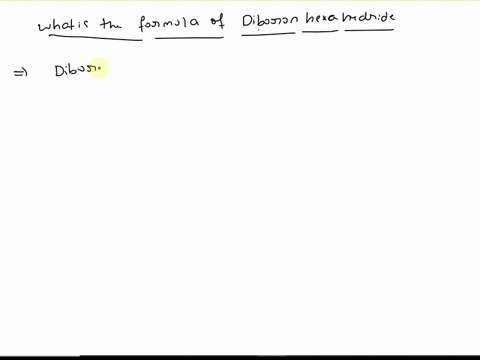 what is the formula of Diboron hexahedride
⇒ Dibor